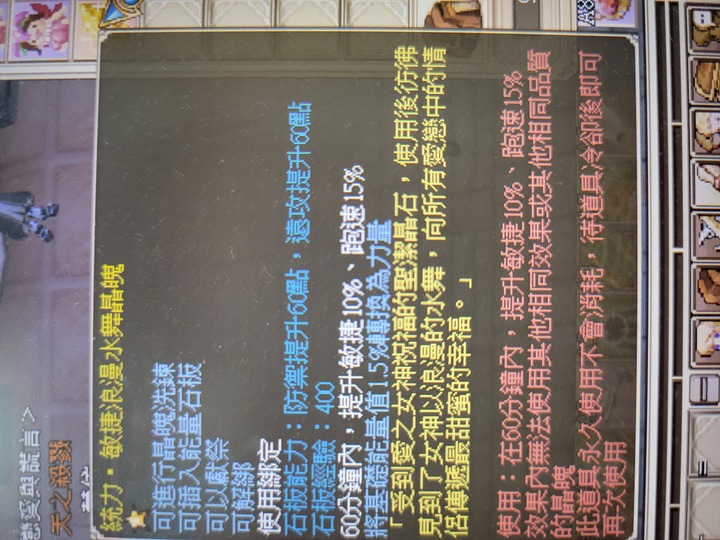 戀愛與謊言>
天之殺戮
統力・敏捷浪漫水舞晶魄
可進行晶魄洗鍊
可插入能量石板
可以獻祭
可解綁
使用綁定
石板能力：防禦提升60點，遠攻提升60點
石板經驗：400
60分鐘內，提升敏捷10%、跑速15%
將基礎能量值1.5%轉換為力量
「受到愛之女神祝福的聖潔晶石，使用後彷彿
見到了女神以浪漫的水舞，向所有愛戀中的情
侶傳遞最甜蜜的幸福。」
使用：在60分鐘內，提升敏捷10%、跑速15%
效果內無法使用其他相同效果或其他相同品質
的晶魄
此道具永久使用不會消耗，待道具冷卻後即可
再次使用